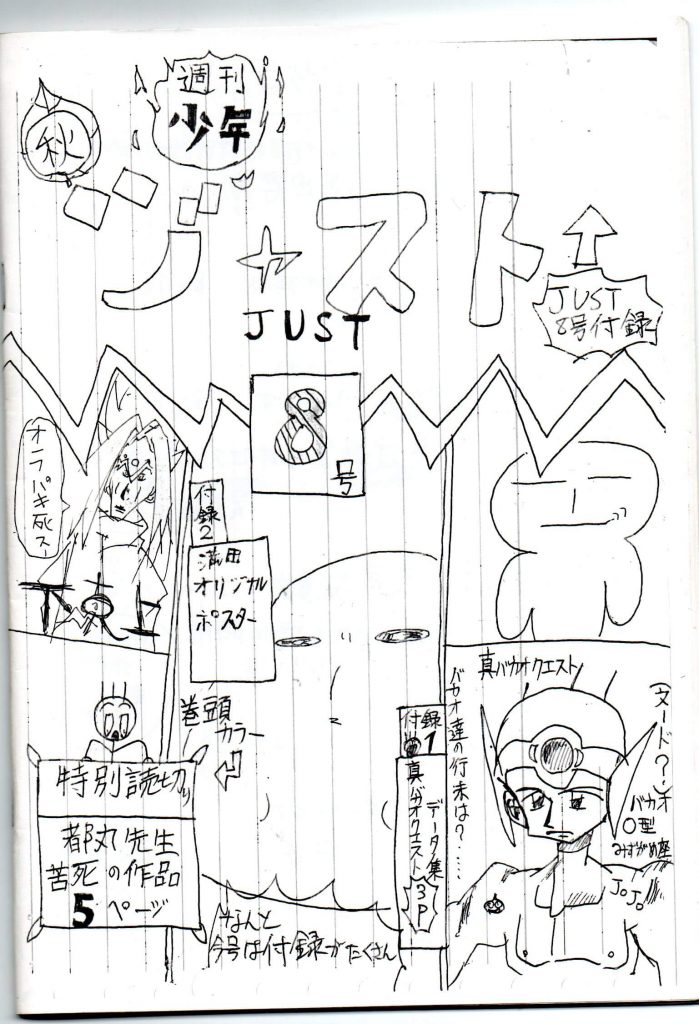 秋
週刊
少年
ジャスト
JUST
JUST
8号付録
8
号
オラパキ死スー
下克上
付録2
満田
オリジナル
ポスター
巻頭
カラー
特別読切り
都丸先生
苦死の作品
5ページ
なんと
今号は付録がたくさん
付録1
真バカオクエスト
データ集
3P
真バカオクエスト
バカオ達の行末は?……
(ヌード?)
バカオ
O型
みずがめ座
JoJo